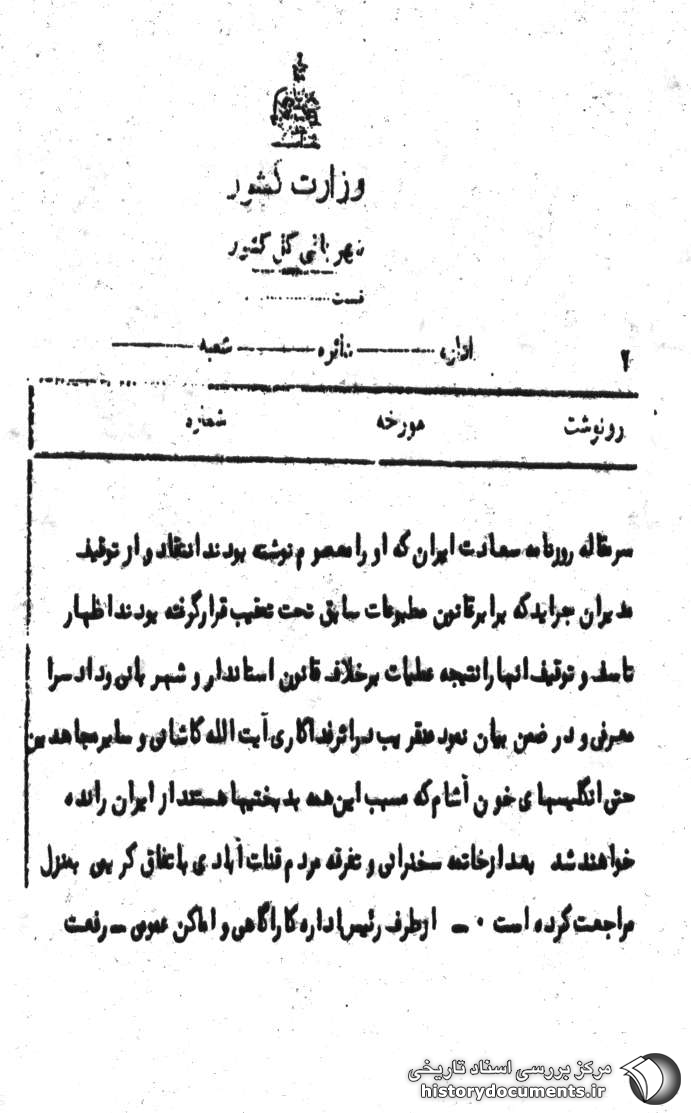 وزارت کشور
شهربانی کل کشور
قسمت
اداره دائره شعبه
۲
رونوشت مورخه شماره
سرمقاله روزنامه سعادت ایران که او را معصوم نوشته بودند انتقاد و از توقیف
مدیران جرایدکه برابرقانون مطبوعات سابق تحت تعقیب قرارگرفته بودند اظهار
تاسف و توقیف انها را نتیجه عملیات برخلاف قانون استاندار و شهربانی و دادسرا
معرفی و در ضمن بیان نمود عنقریب دراثرفداکاری آیت الله کاشانی و سایرمجاهدین
حتی انگلیسهای خون آشام که مسبب این همه بدبختیها هستند از ایران رانده
خواهند شد بعد ازخاتمه سخنرانی و تفرقه مردم قنات آبادی باتفاق کریمی بمنزل
مراجعت کرده است ۰ ـ ازطرف رئیس اداره کارآگاهی و اماکن عمومی ـ رفعت
مرکز بررسی اسناد تاریخی
historydocuments.ir